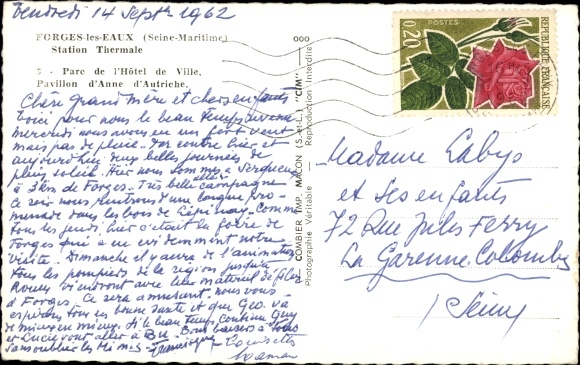 Vendredi 14 Septbre 1962
FORGES-les-EAUX (Seine-Maritime)
Station Thermale
5 - Parc de l'Hôtel de Ville,
Pavillon d'Anne d'Autriche.
Chère grand'mère et chers enfants
Voici pour nous le beau temps
mercredi nous avons eu un fort vent
mais pas de pluie. Par contre hier et
aujourd'hui deux belles journées de
plein soleil. Hier nous sommes aller à Serqueux
à 3 km de Forges. Très belle campagne
Ce soir nous rentrons d'une longue pro-
menade dans les bois de l'Epinay. Comme
tous les jeudi, hier c'était la foire de
Forges qui a eu evidemment notre
visite. Dimanche il y aura de l'animation
Tous les pompiers de la region jusqu'à
Rouen viendront avec leur matériel défiler
à Forges. Ce sera amusant. nous vous
espérons tous en bonne santé et que Geo. va
de mieux en mieux. Si le beau temps continu Guy
et Lucie vont aller à Bu. Bons baisers à tous
sans oublier les
Louisette
Maman
COMBIER IMP. MACON (S.-et-L.) "CIM"
Photographie Véritable - Reproduction Interdite
0,20
POSTES
REPUBLIQUE FRANÇAISE
Madame Labys
et Ses enfants
72 Rue Jules Ferry
La Garenne Colombes
(Seine)